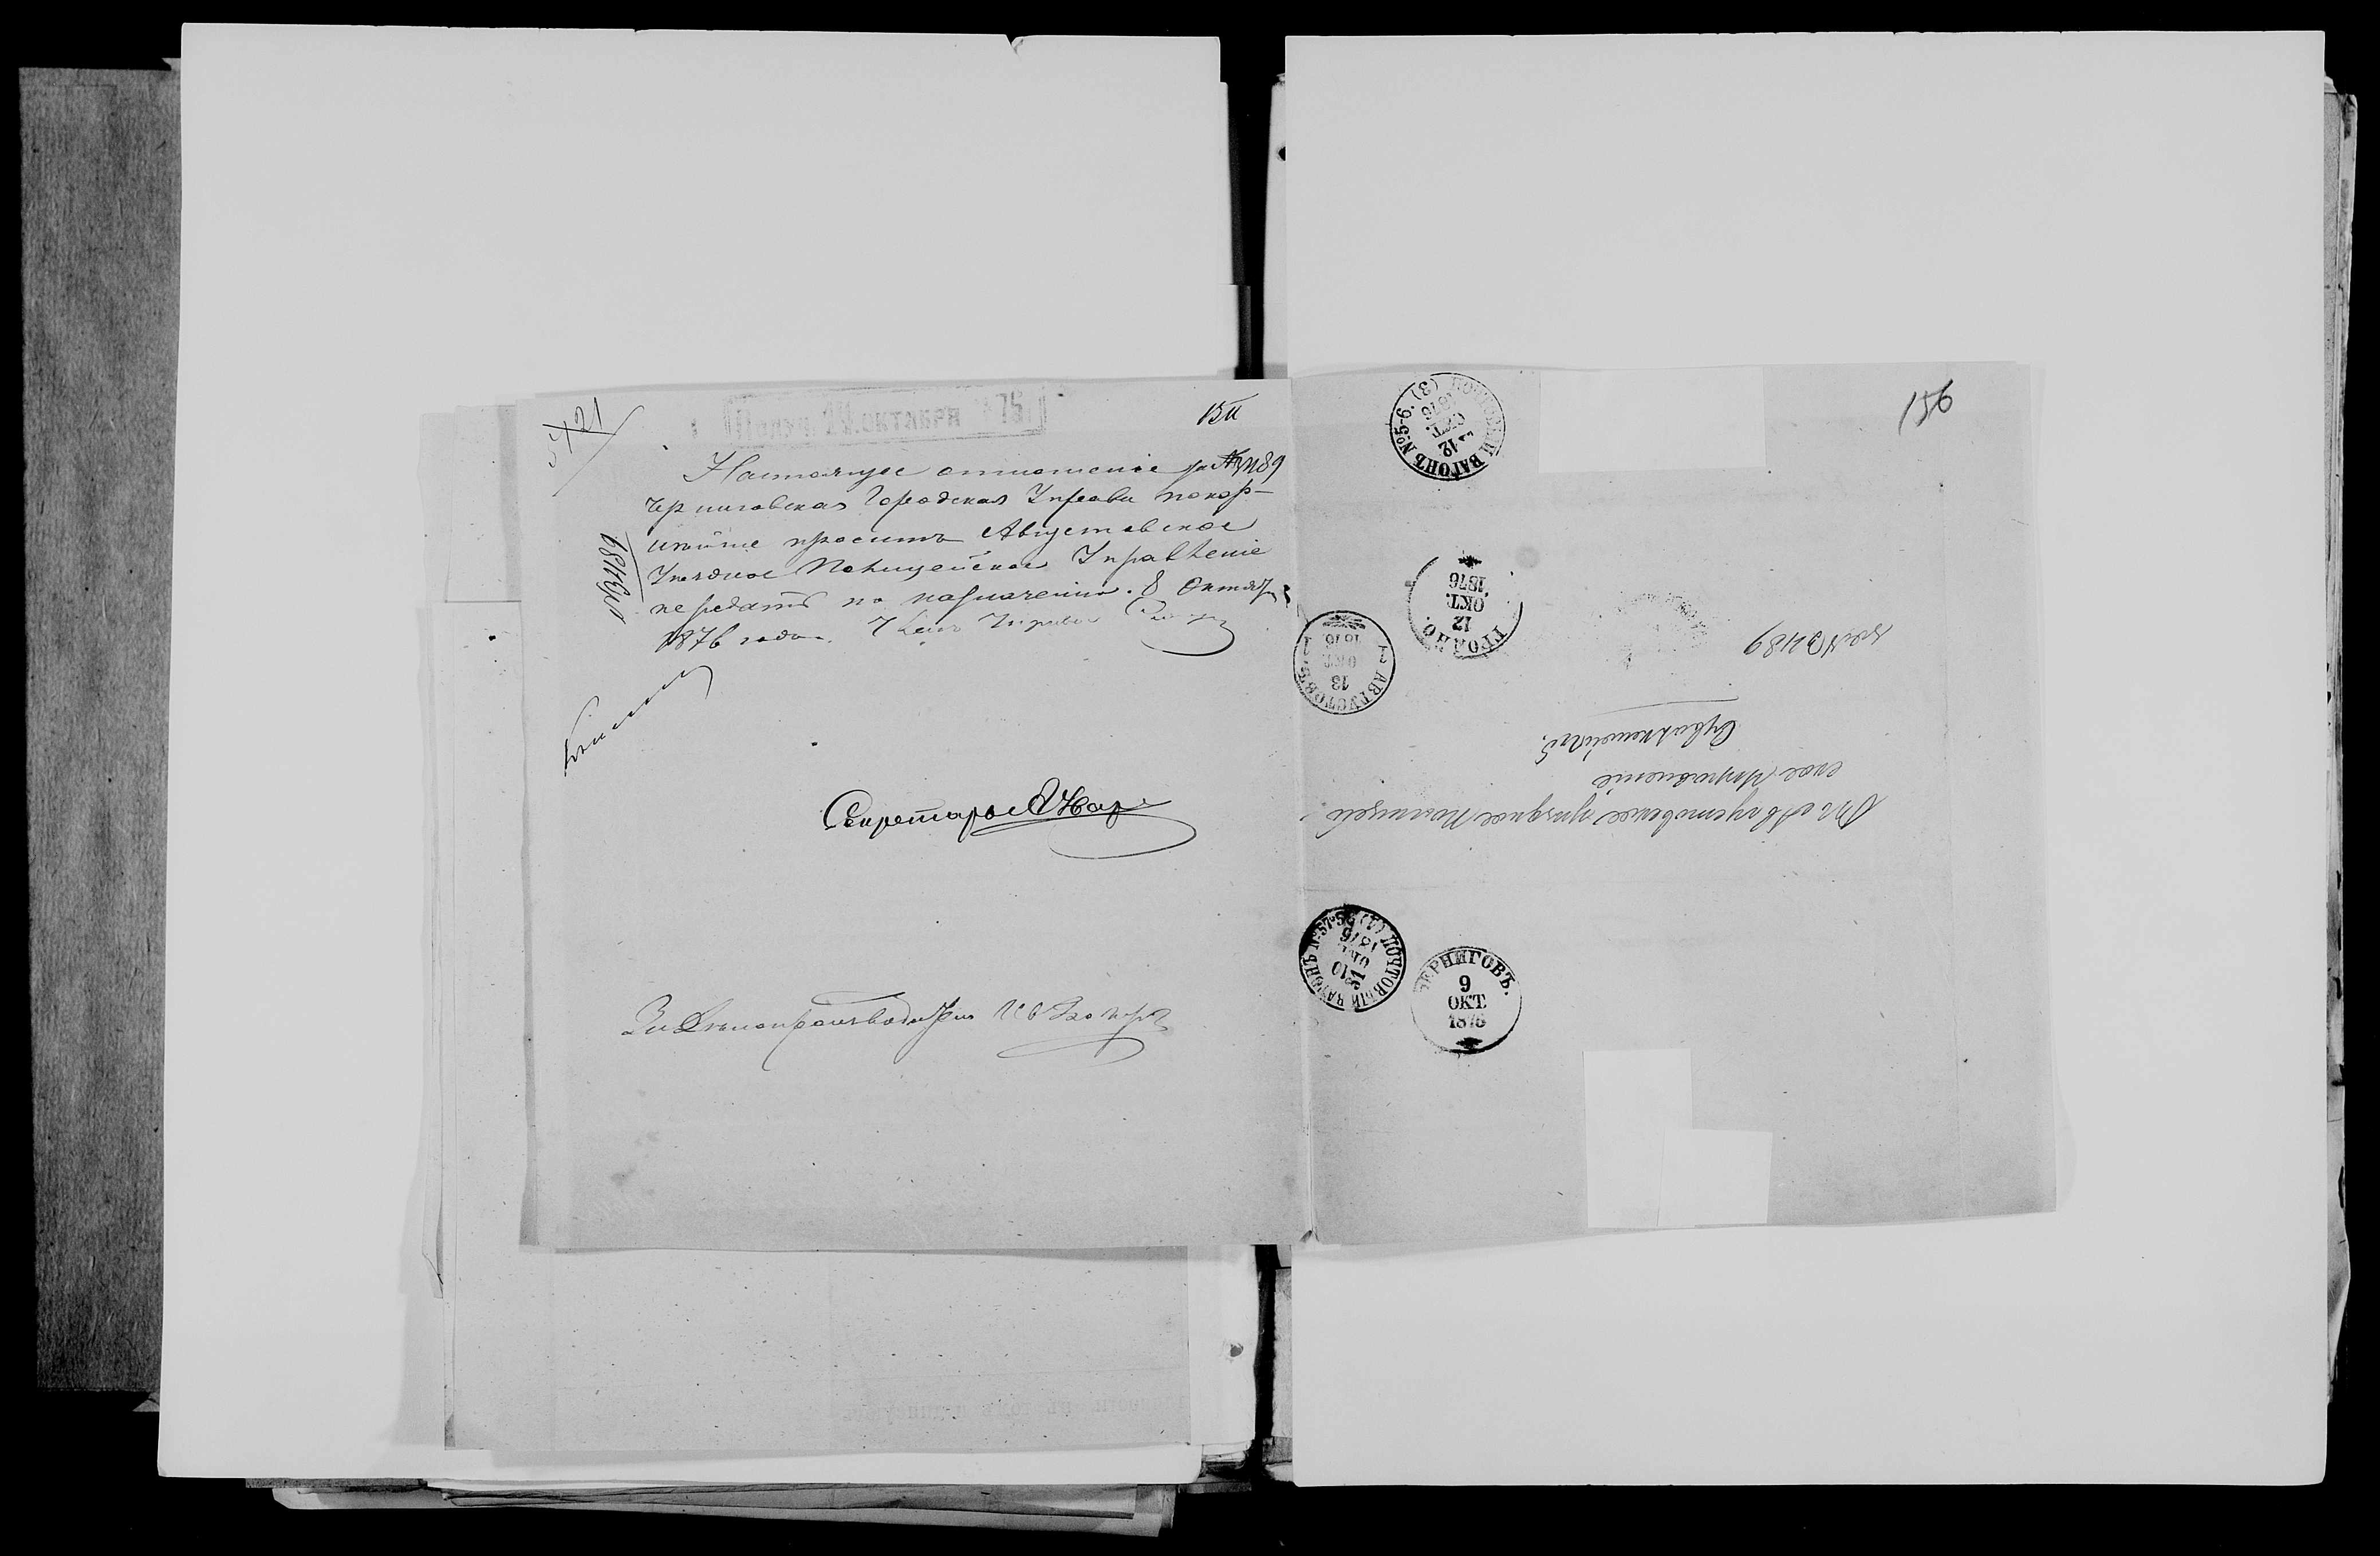 Получ. 14 октября 1876
5421
Настоящее отношение за № 3489
Черниговская Городская Управа покор-
нѣйше проситъ Августовское
Уѣздное Полицейское Управленіе
передать по назначенію. 8 Октября
1876 года. Членъ Управы
№ 3489
Секретарь
За Дѣлопроизводителя
156
ПОЧТОВЫЙ ВАГОНЪ № 5-9. (3)
12
ОКТ.
1876
ГРОДНО.
12
ОКТ.
1876
АВГУСТОВЪ
13
ОКТ
1876
за № 3489
Въ Августовское уѣздное Полицей-
ское Управленіе
Сувалкской губ.
ПОЧТОВЫЙ ВАГОНЪ
10
1876
ЧЕРНИГОВЪ.
9
ОКТ.
1876